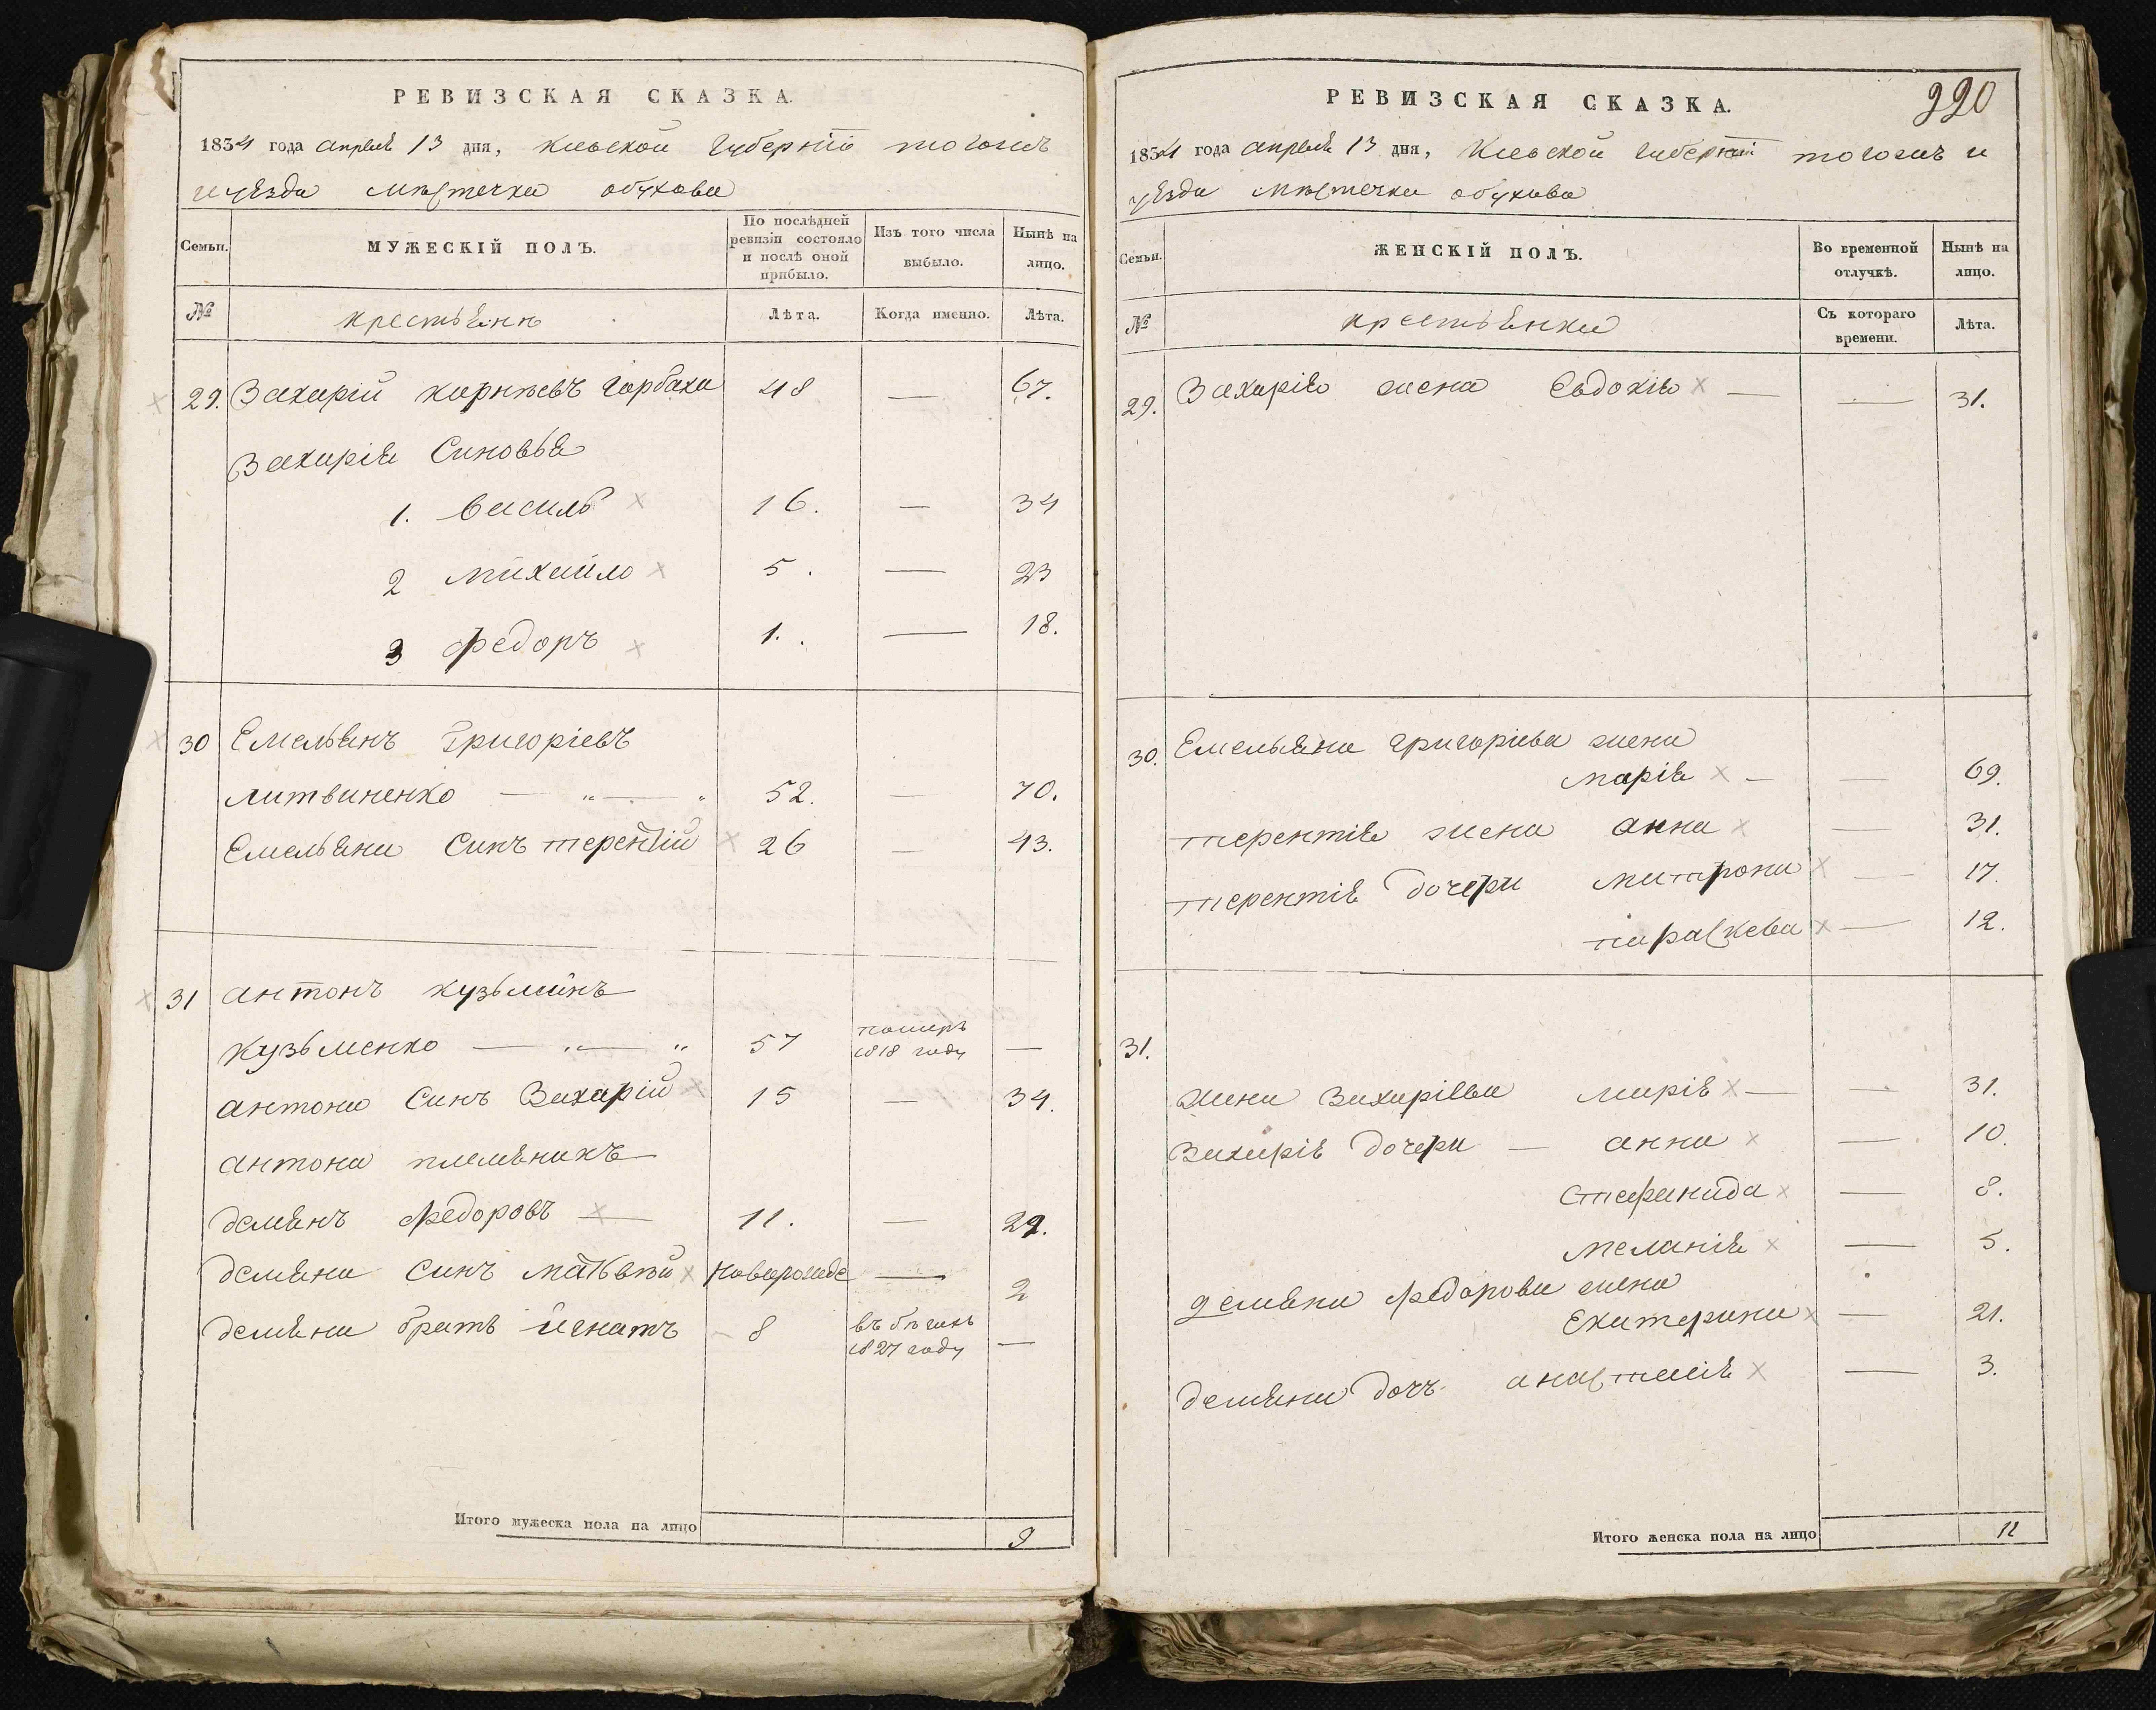 РЕВИЗСКАЯ СКАЗКА.
1834 года апреля 13 дня, Киевской губернiи тогожъ
и уѣзда мѣстечка обухова
Семьи.
МУЖЕСКІЙ ПОЛЪ.
По послѣдней ревизіи состояло и послѣ оной прибыло.
Изъ того числа выбыло.
Нынѣ на лицо.
№
крестьянѣ
Лѣта.
Когда именно.
Лѣта.
29. Захарiй корнѣевъ горбаха 48 — 67.
Захарiя Синовья
1. василь 16. — 34
2 михайло 5. — 23
3 федоръ 1. — 18.
30 Емельянъ Григорiевъ
литвиненко — „ — „ 52. — 70.
Емельяна Синъ терентiй 26 — 43.
31 антонъ кузьминъ
кузьменко — „ — „ 57 померъ 1818 году —
антона Синъ Захарiй 15 — 34.
антона племяникъ
демянъ федоровъ — 11. — 29.
демяна Синъ матвѣй новорожде — 2
демяна братъ игнатъ 8 въ бѣгахъ 1827 году —
Итого мужеска пола на лицо 9
РЕВИЗСКАЯ СКАЗКА.
220
1834 года апреля 13 дня, Киевской губернiи тогожъ и
уѣзда мѣстечка обухова
Семьи.
ЖЕНСКІЙ ПОЛЪ.
Во временной отлучкѣ.
Нынѣ на лицо.
№
крестьянки
Съ котораго времени.
Лѣта.
29. Захарiя жена Евдокiя — — 31.
30. Емельяна григорiева жена
марiя — — 69.
терентiя жена анна — 31.
терентiя дочери матрона — 17.
параскева — 12.
31.
жена Захарiева марiя — — 31.
Захарiя дочери — анна — 10.
стефанида — 8.
меланiя — 5.
демяна федорова жена
Екатерина — 21.
демяна дочъ анастасiя — 3.
Итого женска пола на лицо 11